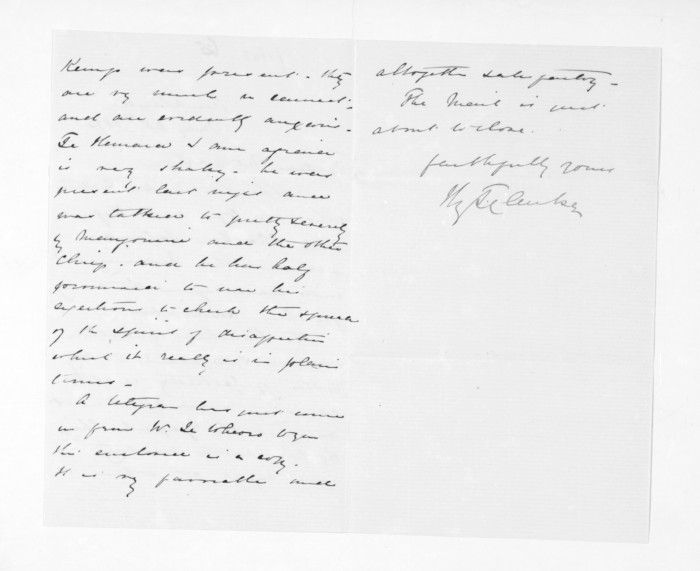 Kemp were present. They
are very much in earnest
and are evidently anxious.
Te Hemara I am afraid
is very shaky. he was
present last night and
was talked to pretty severely
by and the other
Chiefs. and he has half
promised to use his
exertions to check the spread
of the spirit of disaffection
which it really is in plain
terms -
A telegram has just come
in from Wi Te Wheoro
the enclosed is a copy.
It is very favorable and
altogether satisfactory -
The Mail is just
about to close.
faithfully yours
Hy T Clarke